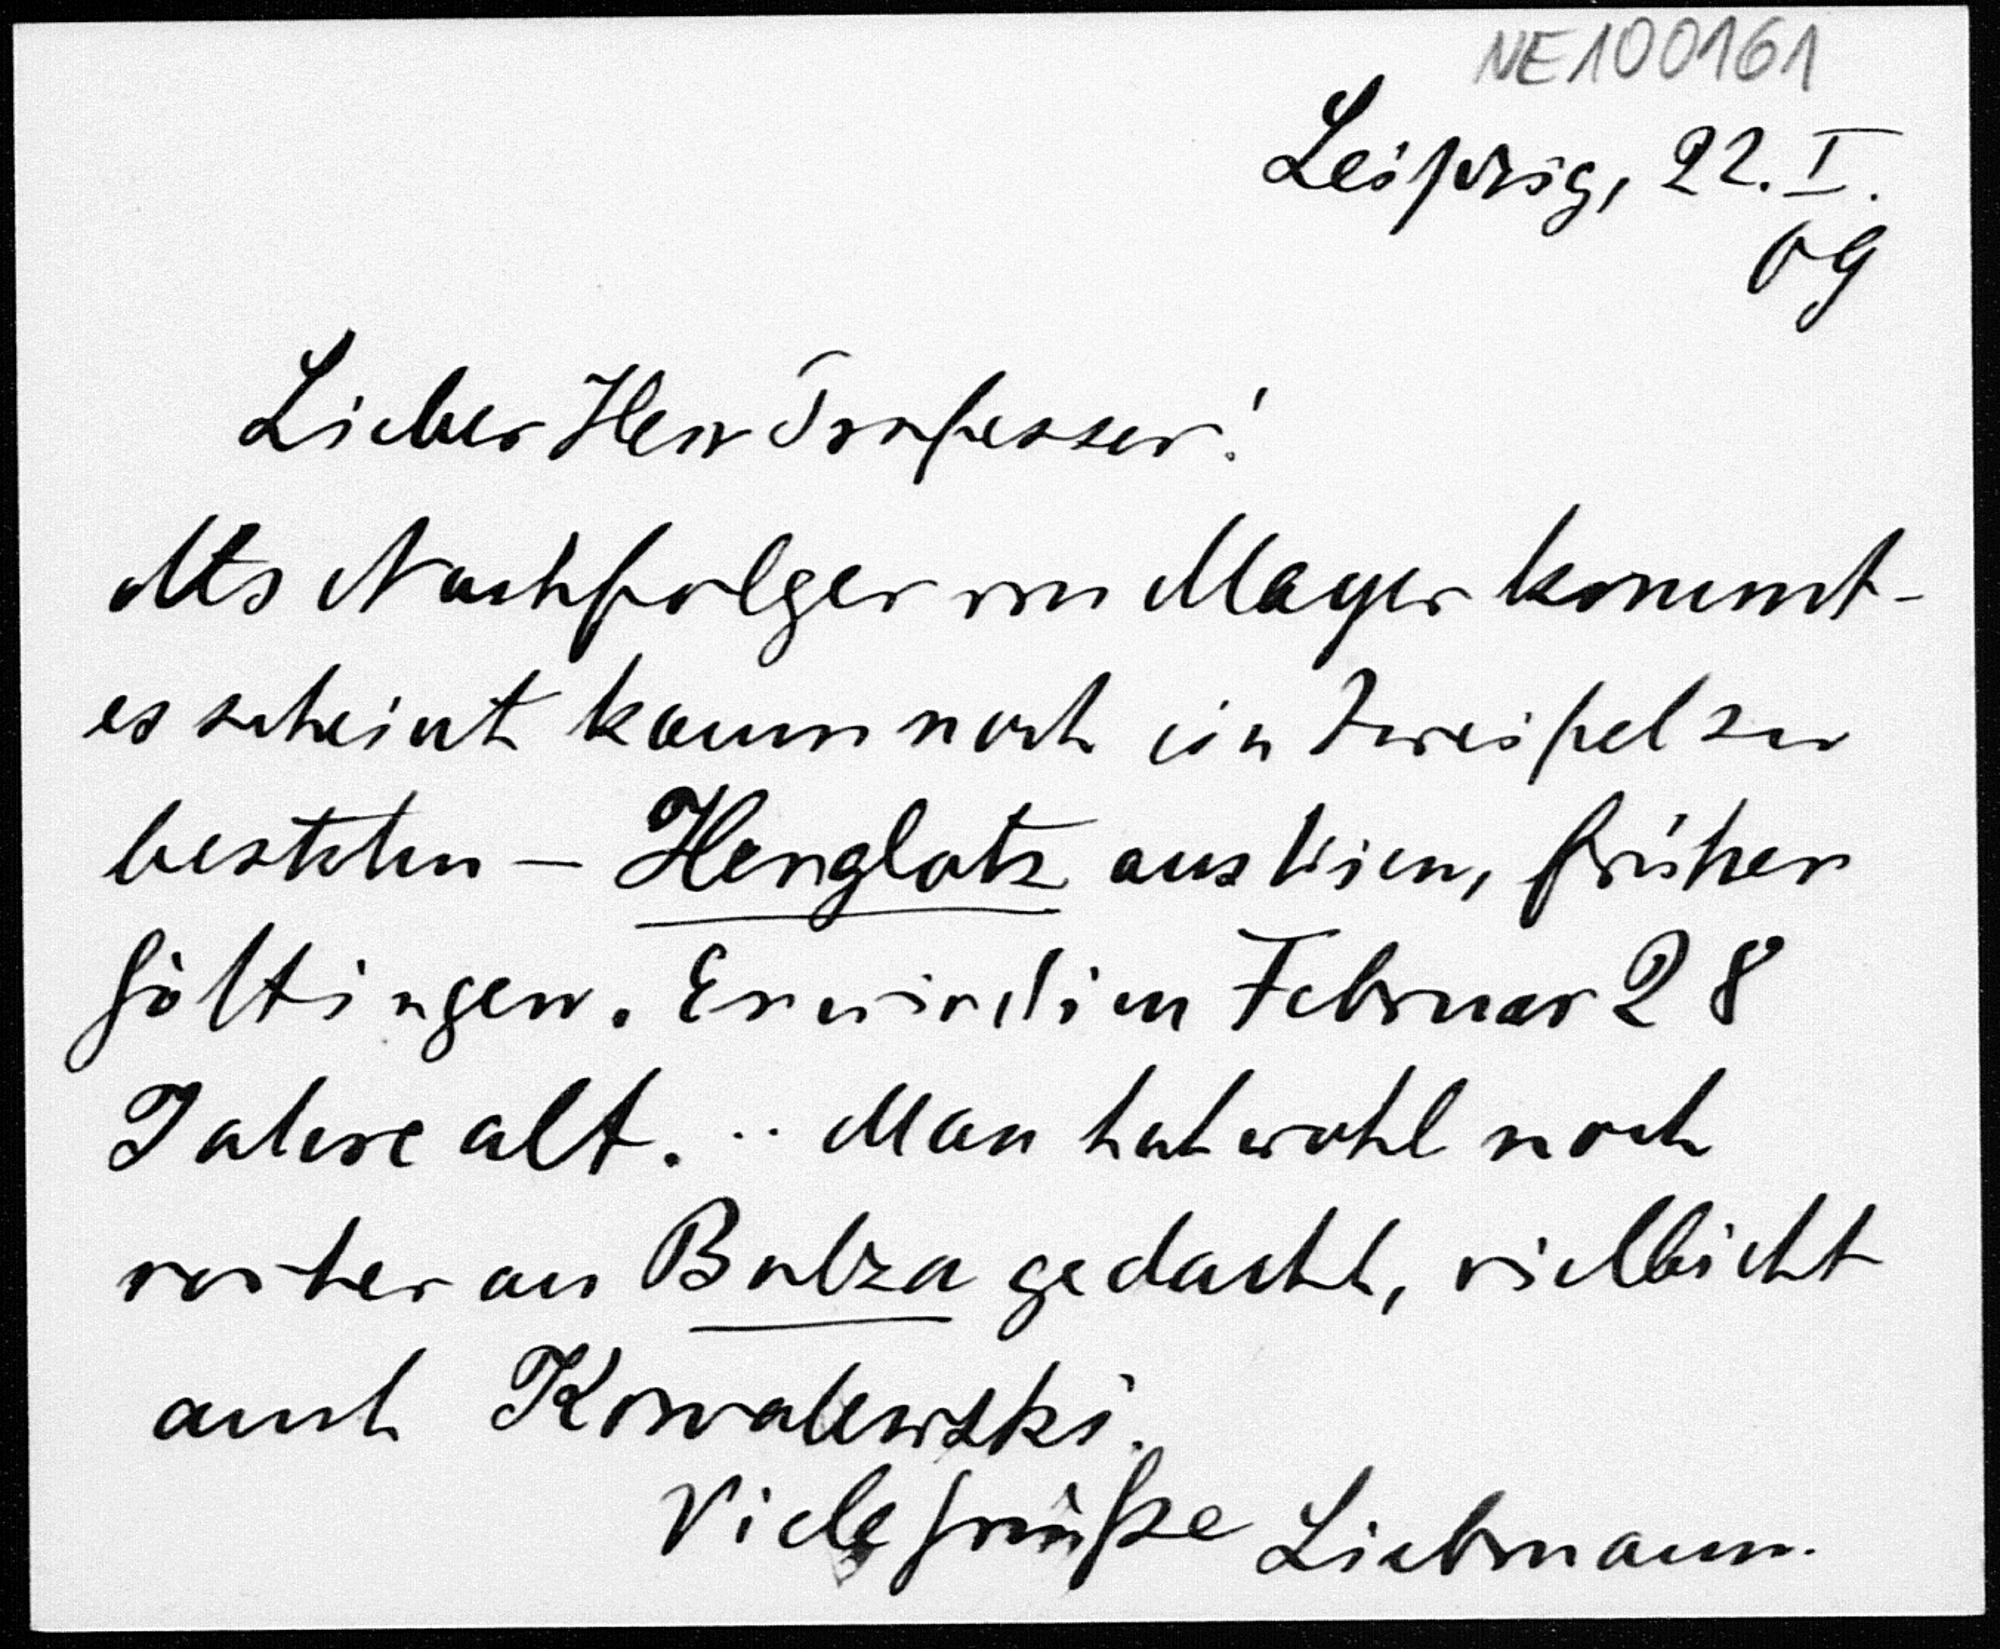 NE100161
Leipzig, 22. I.
09
Lieber Herr Professor!
Als Nachfolger von Mayer kommt -
es scheint kaum noch ein Zweifel zu
bestehen — Herglotz aus Wien, früher
Göttingen. Er wird im Februar 28
Jahre alt. .. Man hat wohl noch
vorher an Bolza gedacht, vielleicht
auch Kowalewski.
Viele Grüße Liebmann.